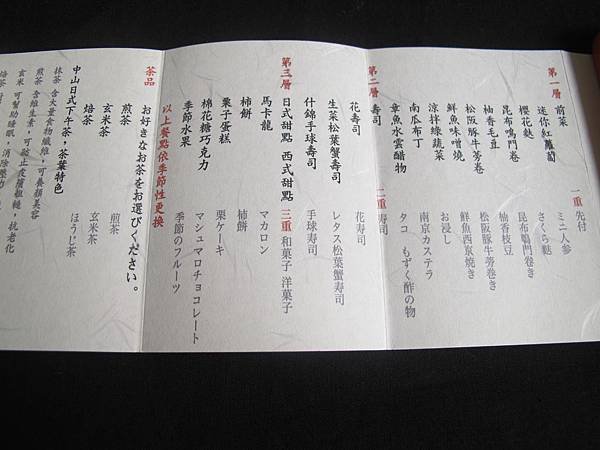 第一層 前菜
一重 先付
迷你紅蘿蔔
ミニ人参
櫻花麩
さくら麩
昆布鳴門卷
昆布鳴門巻き
柚香毛豆
柚香枝豆
松阪豚牛蒡卷
松阪豚牛蒡巻き
鮮魚味噌燒
鮮魚西京焼き
涼拌綠蔬菜
お浸し
南瓜布丁
南京カステラ
章魚水雲醋物
タコ もずく酢の物
第二層 壽司
二重 寿司
花壽司
花寿司
生菜松葉蟹壽司
レタス松葉蟹寿司
什錦手球壽司
手球寿司
第三層 日式甜點 西式甜點
三重 和菓子 洋菓子
馬卡龍
マカロン
柿餅
柿餅
栗子蛋糕
栗ケーキ
棉花糖巧克力
マシュマロチョコレート
季節水果
季節のフルーツ
以上餐點依季節性更換
茶品
お好きなお茶をお選びください。
煎茶
煎茶
玄米茶
玄米茶
焙茶
ほうじ茶
中山日式下午茶，茶葉特色
抹茶 含大量食物纖維，可養顏美容
煎茶 含維生素，可防止皮膚粗糙，抗老化
玄米 可幫助睡眠，消除壓力
焙茶